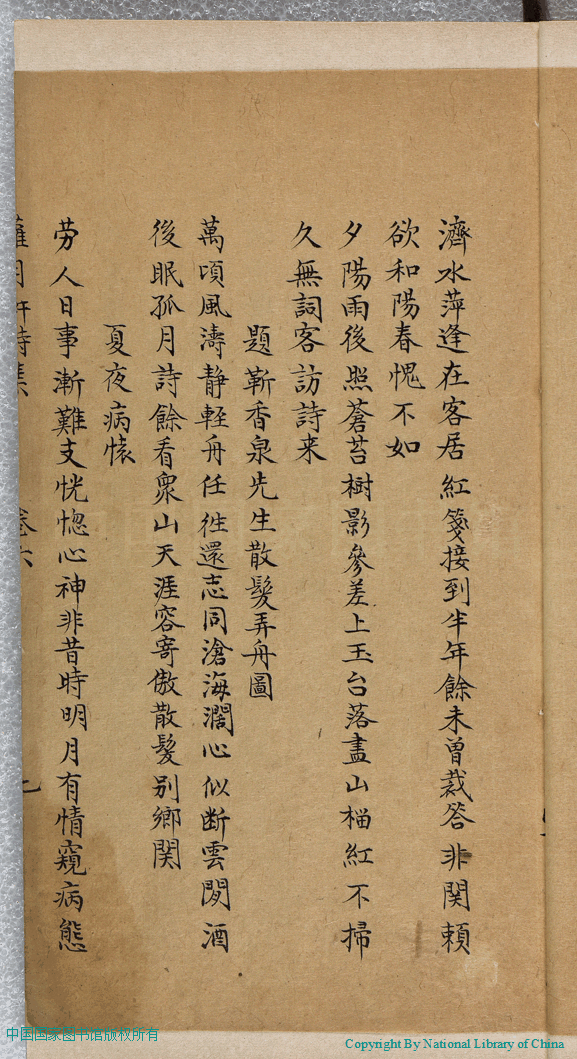 濟水萍逢在客居紅箋接到半年餘未曾裁答非関頼
欲和陽春愧不如
夕陽雨後照蒼苔樹影參差上玉台落盡山榴紅不掃
久無詞客訪詩来
題靳香泉先生散髮弄舟圖
萬頃風濤静輊舟任徃還志同滄海濶心似断雲閒酒
後眠孤月詩餘看衆山天涯容寄傲散髮别鄉関
夏夜病懐
劳人日事漸難支恍惚心神非昔時明月有情窺病態
月軒詩集
卷六
中国国家图书馆版权所有
Copyright By National Library of China